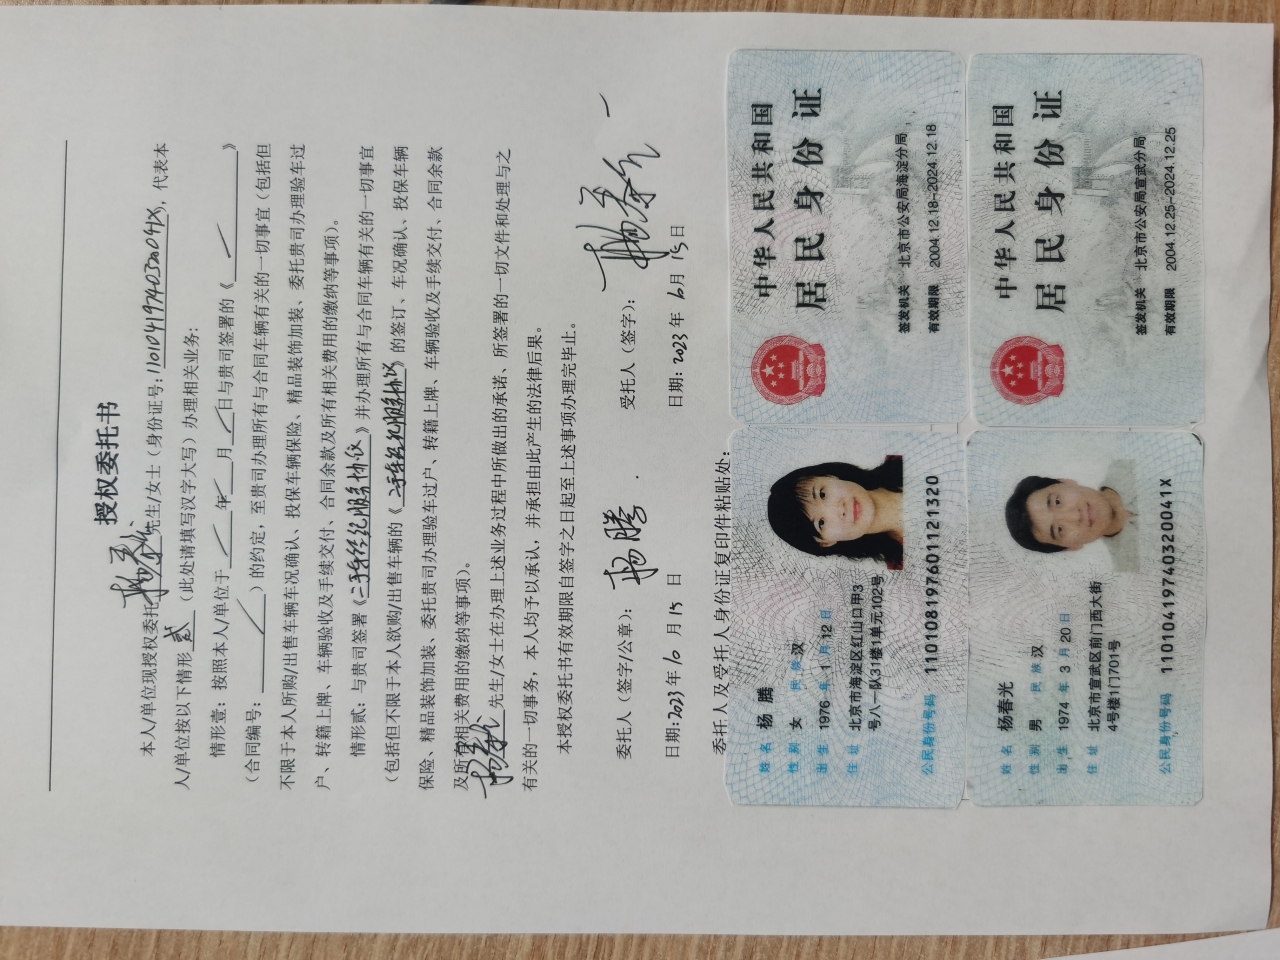 授权委托书
本人/单位现授权委托杨春光先生/女士（身份证号：11010419740320041X，代表本
人/单位按以下情形贰（此处请填写汉字大写）办理相关业务：
情形壹：按照本人/单位于 年 月 日与贵司签署的《 》
（合同编号： ）的约定，至贵司办理所有与合同车辆有关的一切事宜（包括但
不限于本人所购/出售车辆车况确认、投保车辆保险、精品装饰加装、委托贵司办理验车过
户、转籍上牌、车辆验收及手续交付、合同余款及所有相关费用的缴纳等事项）。
情形贰：与贵司签署《二手车经纪服务协议》并办理所有与合同车辆有关的一切事宜
（包括但不限于本人欲购/出售车辆的《二手车经纪服务协议》的签订、车况确认、投保车辆
保险、精品装饰加装、委托贵司办理验车过户、转籍上牌、车辆验收及手续交付、合同余款
及所有相关费用的缴纳等事项）。
杨春光先生/女士在办理上述业务过程中所做出的承诺、所签署的一切文件和处理与之
有关的一切事务，本人均予以承认，并承担由此产生的法律后果。
本授权委托书有效期限自签字之日起至上述事项办理完毕止。
委托人（签字/公章）：杨腾 受托人（签字）：杨春光
日期：2023年6月15日 日期：2023年6月15日
委托人及受托人身份证复印件粘贴处：
姓名 杨腾
性别 女 民族 汉
出生 1976年1月12日
住址 北京市海淀区红山口甲3
号八一队31楼1单元102号
公民身份号码 110108197601121320
中华人民共和国
居民身份证
签发机关 北京市公安局海淀分局
有效期限 2004.12.18-2024.12.18
姓名 杨春光
性别 男 民族 汉
出生 1974年3月20日
住址 北京市宣武区前门西大街
4号楼1门701号
公民身份号码 11010419740320041X
中华人民共和国
居民身份证
签发机关 北京市公安局宣武分局
有效期限 2004.12.25-2024.12.25